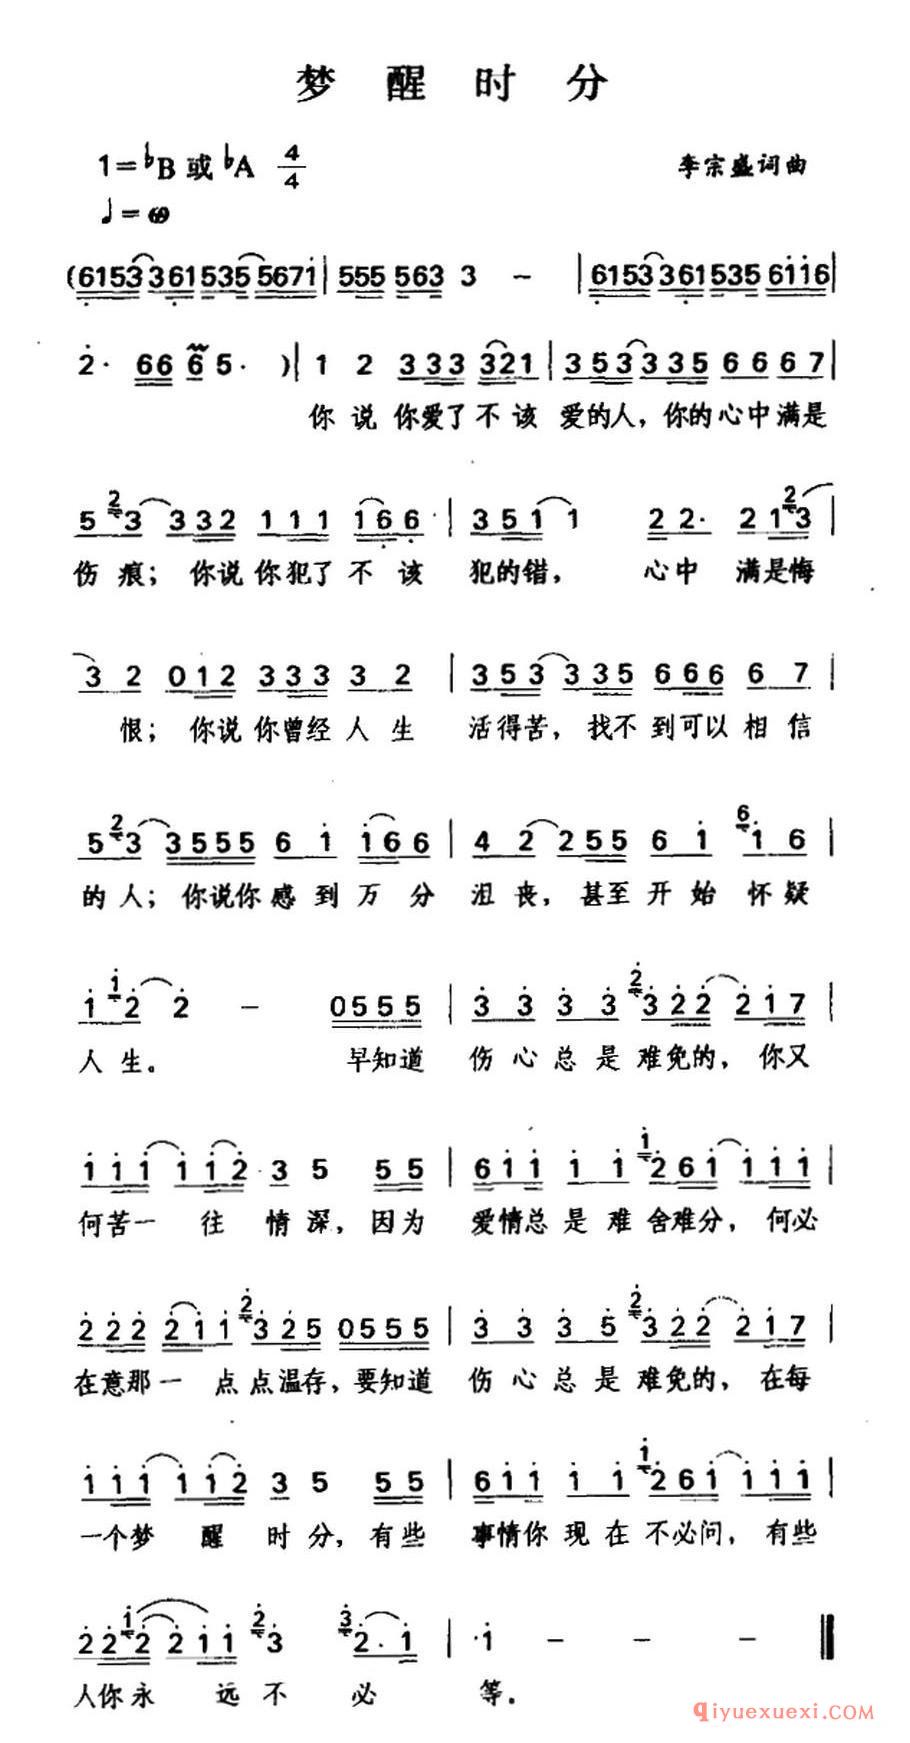 梦醒时分
1=♭B或♭A 4/4 李宗盛词曲
♩=69
(6153 361 535 5671 | 555 563 3 - | 6153 361 535 6116 |
2· 66 6 5· ) | 1 2 333 321 | 353 335 66 67 |
你说你爱了不该 爱的人，你的心中满是
5 2 3 332 111 166 | 351 1 22· 21 2 3 |
伤痕；你说你犯了不该 犯的错， 心中 满是悔
32 012 333 32 | 353 335 666 67 |
恨；你说你曾经人生 活得苦，找不到可以相信
5 2 3 3555 61 166 | 42 255 61 6 16 |
的人；你说你感到万分 沮丧，甚至开始怀疑
1 1 2 2 - 0555 | 33 33 2 322 217 |
人生。 早知道 伤心总是难免的，你又
111 112 3 5 55 | 611 11 1 261 111 |
何苦一往情深，因为 爱情总是难舍难分，何必
222 211 2 325 0555 | 33 35 2 322 217 |
在意那一点点温存，要知道 伤心总是难免的，在每
111 112 3 5 55 | 611 11 1 261 111 |
一个梦醒时分，有些 事情你现在不必问，有些
22 1 2 211 2 3 3 2·1 | 1 - - -
人你永远不必 等。
qiyuexuexi.COM